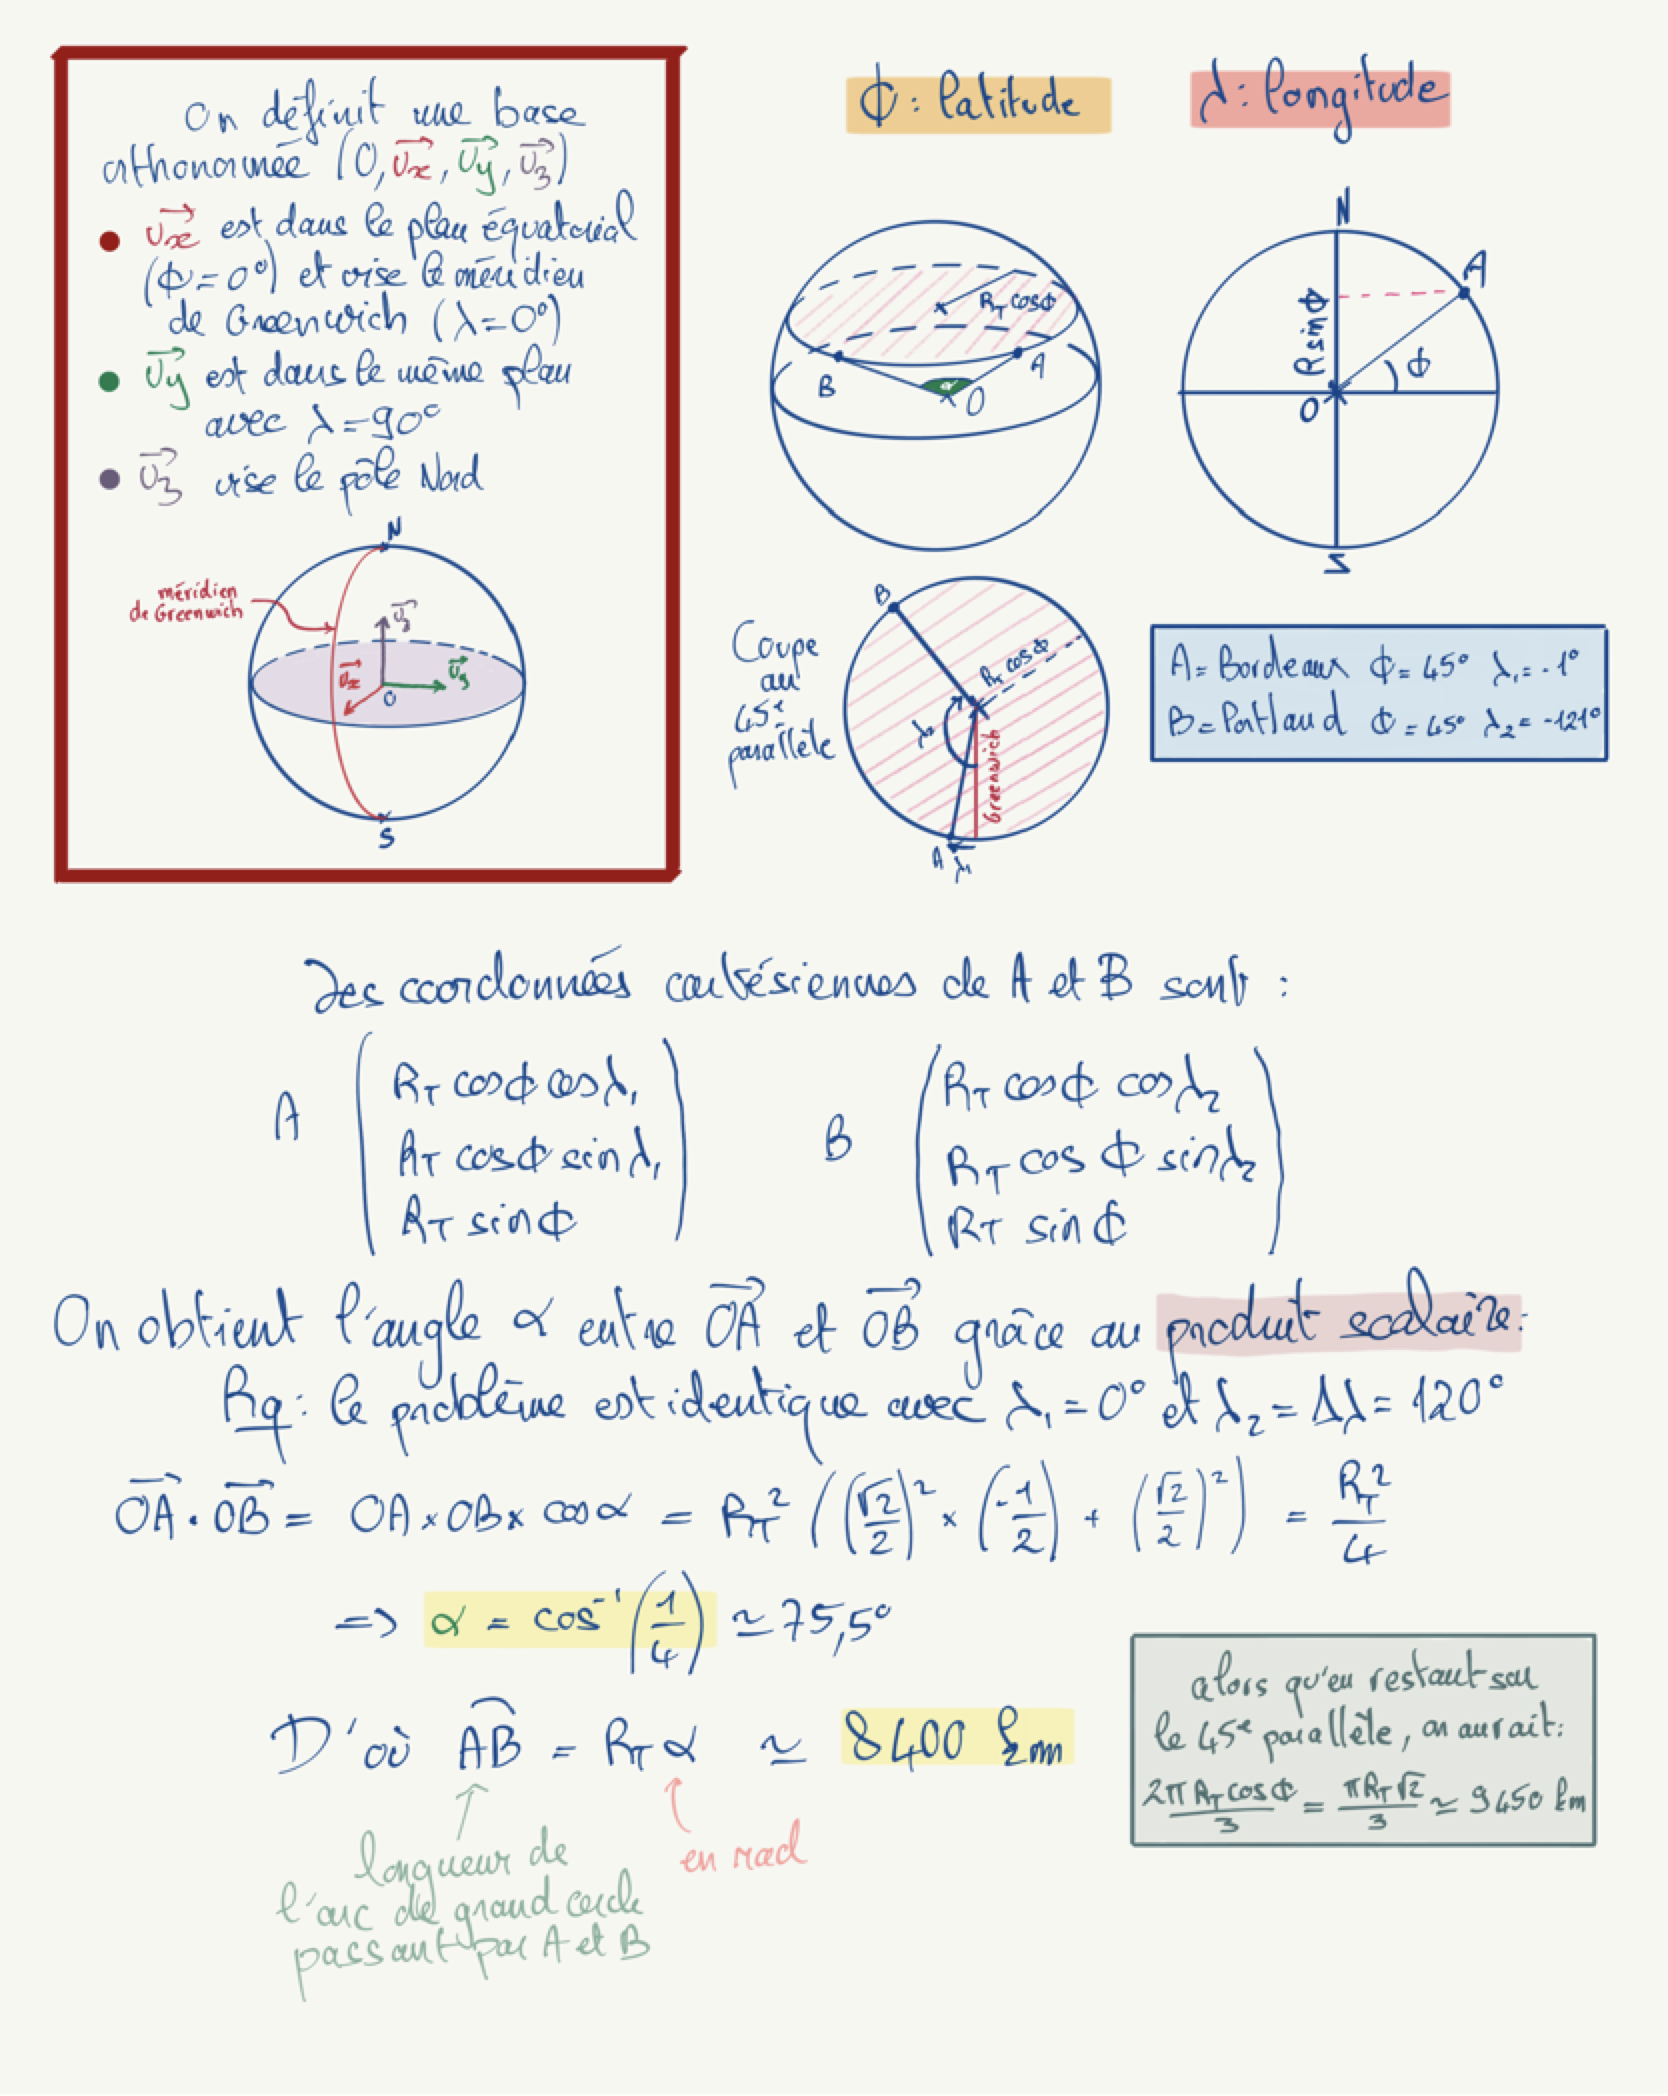 On définit une base
orthonormée (O, u⃗x, u⃗y, u⃗z)
• u⃗x est dans le plan équatorial
(ϕ=0°) et vise le méridien
de Greenwich (λ=0°)
• u⃗y est dans le même plan
avec λ=90°
• u⃗z vise le pôle Nord
N
méridien
de Greenwich
u⃗z
u⃗x
u⃗y
O
S
ϕ: latitude
λ: longitude
R_T cosϕ
B
A
α
O
N
A
R sinϕ
ϕ
O
S
Coupe
au
45e
parallèle
B
R_T cosϕ
λ₂
Greenwich
A
λ₁
A = Bordeaux ϕ = 45° λ₁ = -1°
B = Portland ϕ = 45° λ₂ = -121°
Les coordonnées cartésiennes de A et B sont :
A ( R_T cosϕ cosλ₁
R_T cosϕ sinλ₁
R_T sinϕ )
B ( R_T cosϕ cosλ₂
R_T cosϕ sinλ₂
R_T sinϕ )
On obtient l'angle α entre O⃗A et O⃗B grâce au produit scalaire:
Rq : le problème est identique avec λ₁ = 0° et λ₂ = Δλ = 120°
O⃗A · O⃗B = OA × OB × cos α = R_T² ((√2/2)² × (-1/2) + (√2/2)²) = R_T²/4
=> α = cos⁻¹(1/4) ≃ 75,5°
D'où AB = R_T α ≃ 8400 km
longueur de
l'arc de grand cercle
passant par A et B
en rad
alors qu'en restant sur
le 45e parallèle, on aurait:
2π R_T cosϕ/3 = π R_T √2/3 ≃ 9450 km